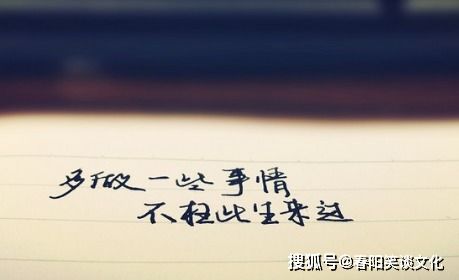 多做一些事情
不枉此生来过
搜狐号@春阳笑谈文化